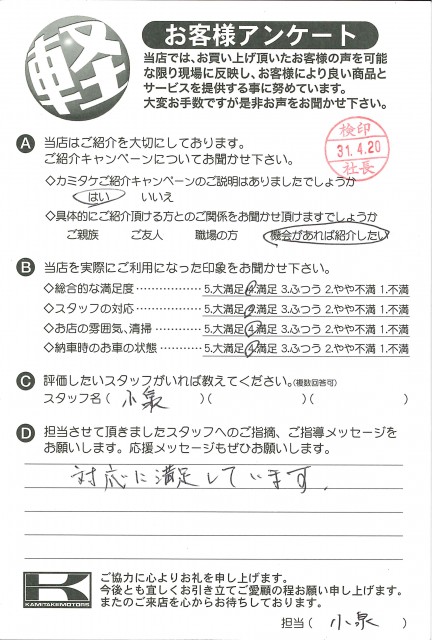 軽
お客様アンケート
当店では、お買い上げ頂いたお客様の声を可能
な限り現場に反映し、お客様により良い商品と
サービスを提供する事に努めています。
大変お手数ですが是非お声をお聞かせ下さい。
A 当店はご紹介を大切にしております。
ご紹介キャンペーンについてお聞かせ下さい。
検印
31.4.20
社長
◇カミタケご紹介キャンペーンのご説明はありましたでしょうか
はい いいえ
◇具体的にご紹介頂ける方とのご関係をお聞かせ頂けますでしょうか
ご親族 ご友人 職場の方 機会があれば紹介したい
B 当店を実際にご利用になった印象をお聞かせ下さい。
◇総合的な満足度 ………………… 5.大満足 4.満足 3.ふつう 2.やや不満 1.不満
◇スタッフの対応 ………………… 5.大満足 4.満足 3.ふつう 2.やや不満 1.不満
◇お店の雰囲気、清掃 …………… 5.大満足 4.満足 3.ふつう 2.やや不満 1.不満
◇納車時のお車の状態 …………… 5.大満足 4.満足 3.ふつう 2.やや不満 1.不満
C 評価したいスタッフがいれば教えてください。(複数回答可)
スタッフ名 ( 小泉 )( )( )
D 担当させて頂きましたスタッフへのご指摘、ご指導メッセージを
お願いします。応援メッセージもぜひお願いします。
対応に満足しています。
K
KAMITAKE MOTORS
ご協力に心よりお礼を申し上げます。
今後とも宜しくお引き立てご愛顧の程お願い申し上げます。
またのご来店を心からお待ちしております。
担当 ( 小泉 )